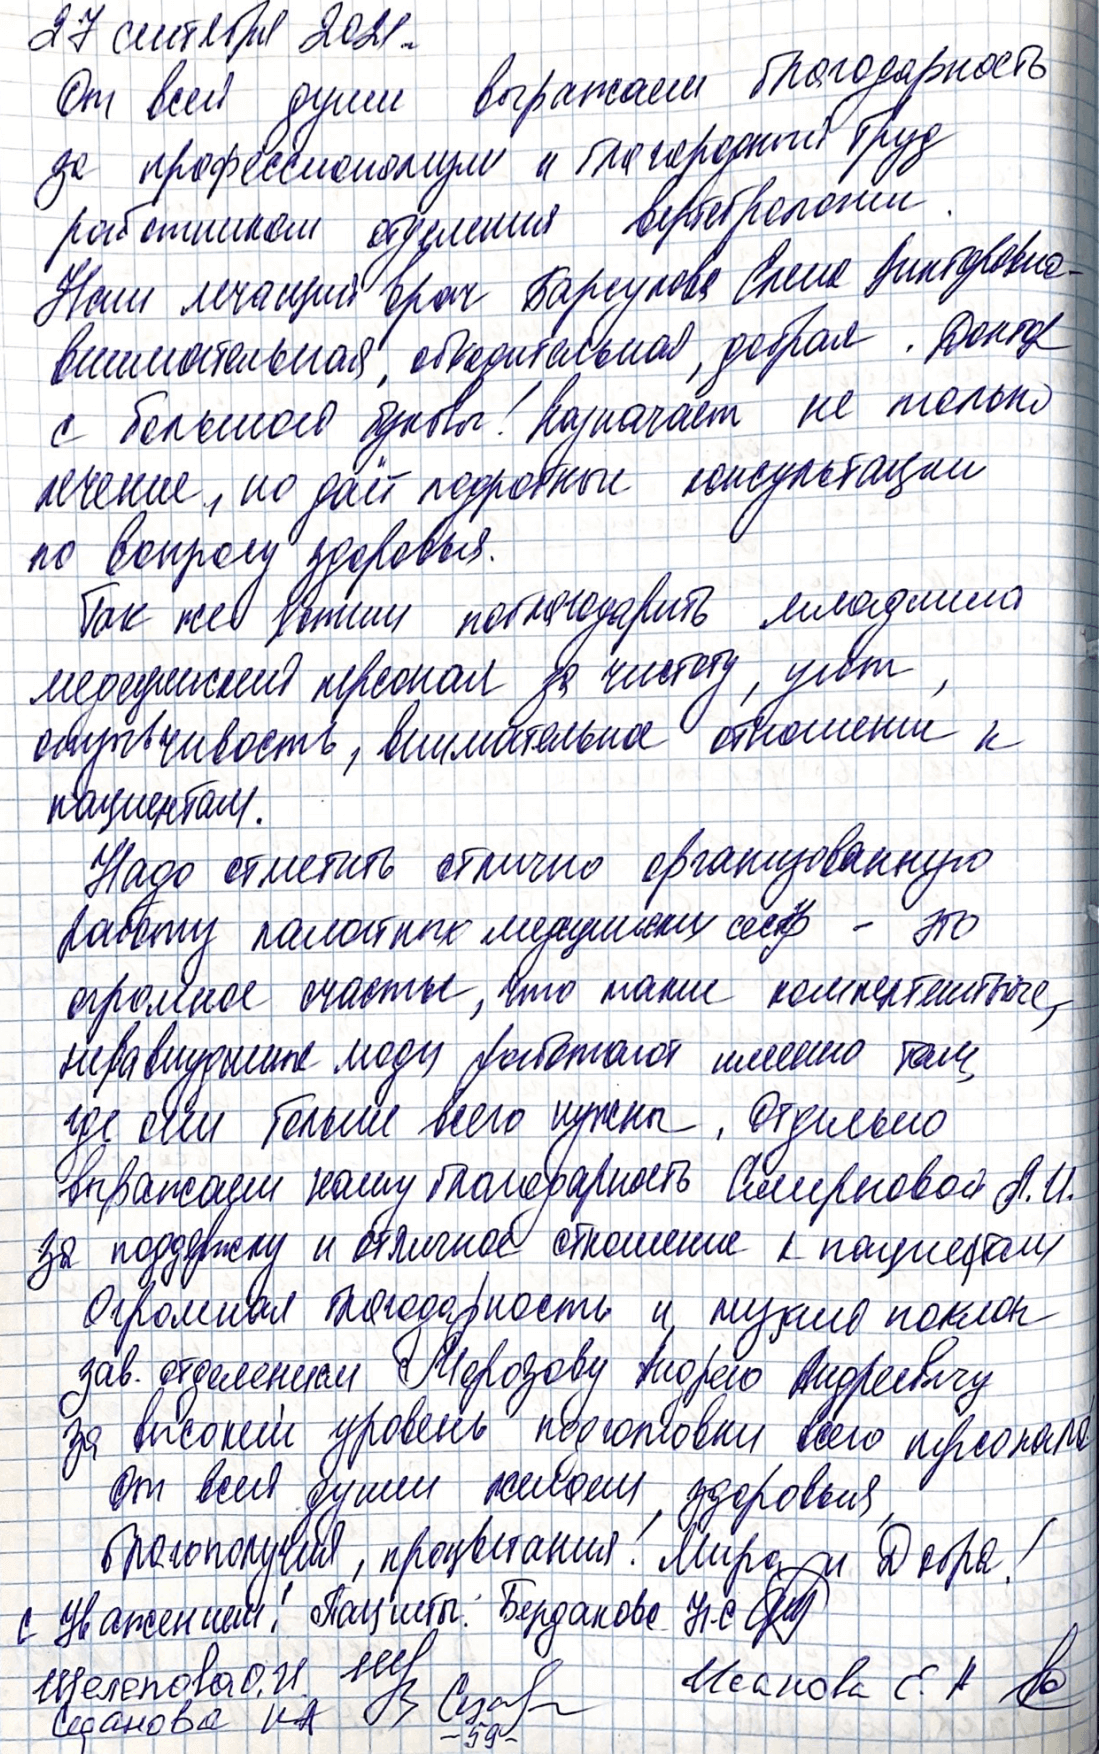 27 сентября 2021г.
От всей души выражаем благодарность
за профессионализм и благородный труд
работникам отделения вертебрологии.
Наш лечащий врач Барсукова Елена Викторовна-
внимательная, обходительная, добрая. Доктор
с большой буквы! Назначает не только
лечение, но даёт подробные консультации
по вопросу здоровья.
Так же хотим поблагодарить младший
медицинский персонал за чистоту, уют,
отзывчивость, внимательное отношение к
пациентам.
Надо отметить отлично организованную
работу палатных медицинских сестёр - это
огромное счастье, что такие компетентные,
неравнодушные люди работают именно там,
где они больше всего нужны. Отдельно
выражаем нашу благодарность Смирновой А.И.
за поддержку и отличное отношение к пациентам
Огромная благодарность и низкий поклон
зав. отделением Морозову Андрею Андреевичу
за высокий уровень подготовки всего персонала
От всей души желаем, здоровья,
благополучия, процветания! Мира и Добра!
с Уважением! Пациенты: Берданова Н.С
Шелепова О.И. Исанова Е.А
Седанова НА
-59-